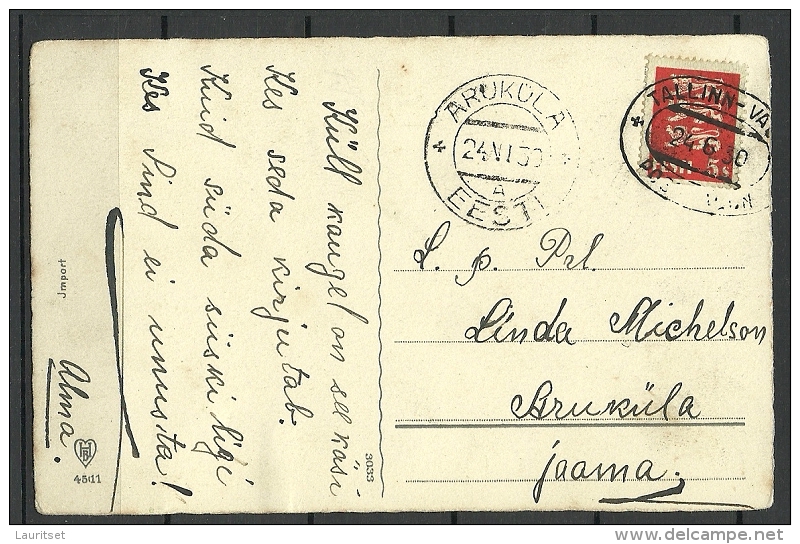 Küll kaugel on see käsi
Kes seda kirjutab.
Kuid süda siiski ligi
Kes Sind ei unusta!
Alma.
Jmport
4511
3033
ARUKÜLA
24 VI 30
A
EESTI
TALLINN-VA
24.6.30
5s
L. p. Prl.
Linda Michelson
Aruküla
jaama.
Lauritset
delcampe.net